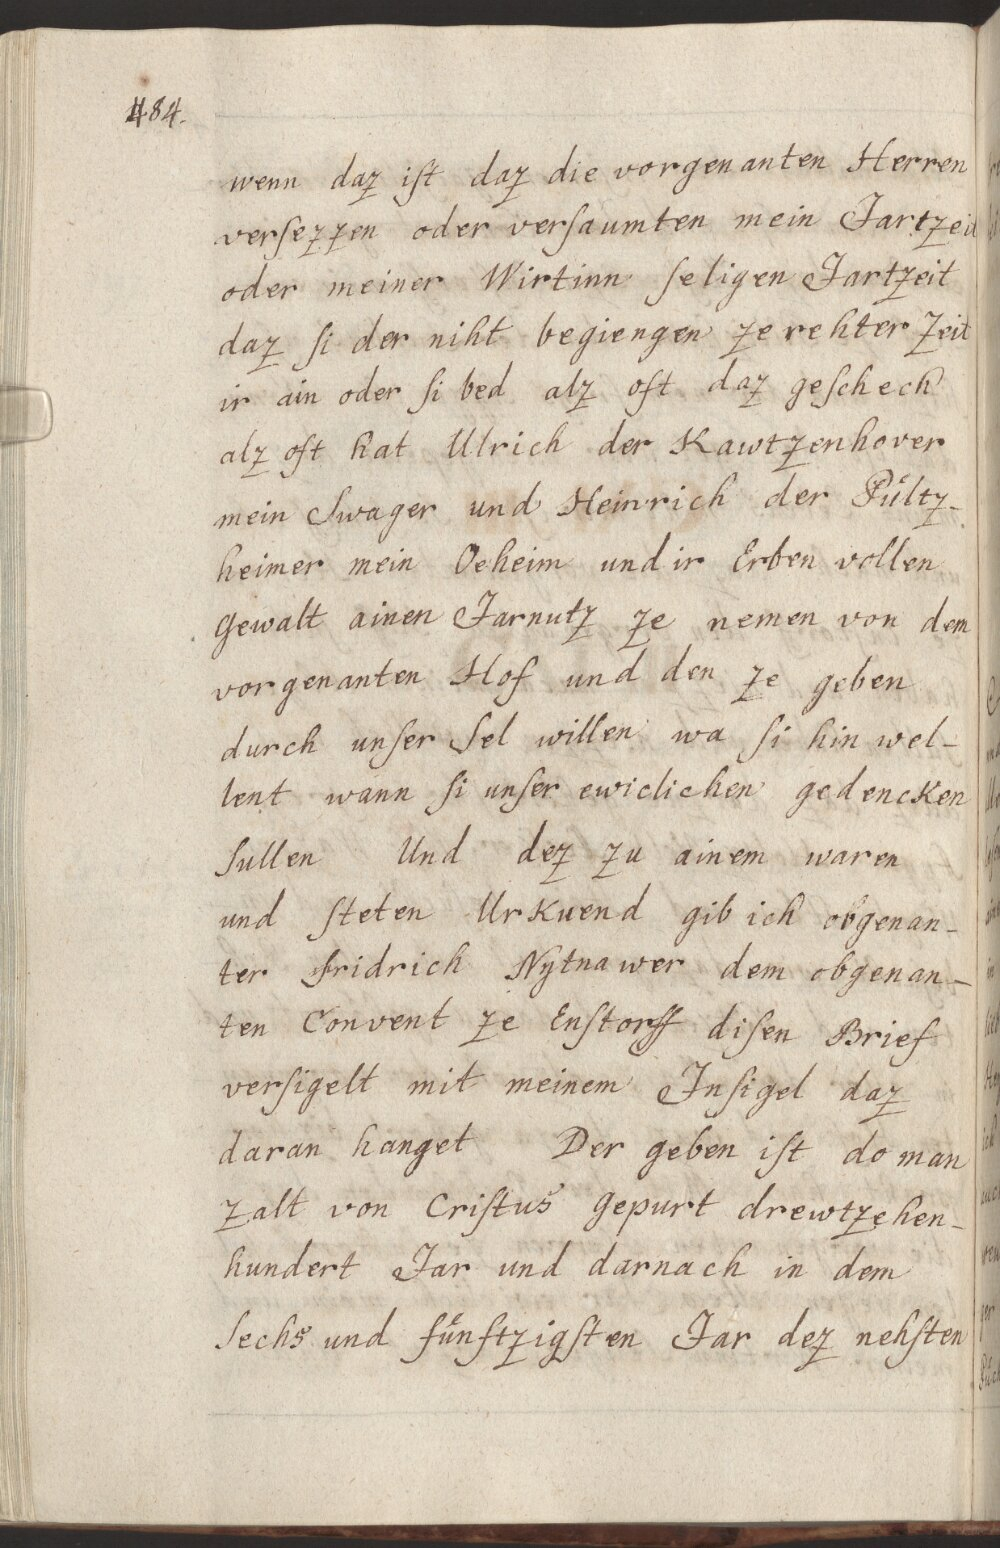 484.
wenn daz ist daz die vorgenanten Herren
versezzen oder versaumten mein Jartzeit
oder meiner Wirtinn seligen Jartzeit
daz si der niht begiengen ze rehter Zeit
ir ain oder si bed alz oft daz geschech
alz oft hat Ulrich der Kawtzenhover
mein Swager und Heinrich der Pültz-
heimer mein Oeheim und ir Erben vollen
Gewalt ainen Jarnutz ze nemen von dem
vorgenanten Hof und den ze geben
durch unser Sel willen wa si hin wel-
lent wann si unser ewiclichen gedencken
sullen Und dez zu ainem waren
und steten Urkuend gib ich obgenan-
ter Fridrich Nytnawer dem obgenan-
ten Convent ze Enstorff disen Brief
versigelt mit meinem Insigel daz
daran hanget Der geben ist do man
Zalt von Cristus Gepurt drewtzehen-
hundert Jar und darnach in dem
Sechs und fünftzigsten Jar dez nehsten